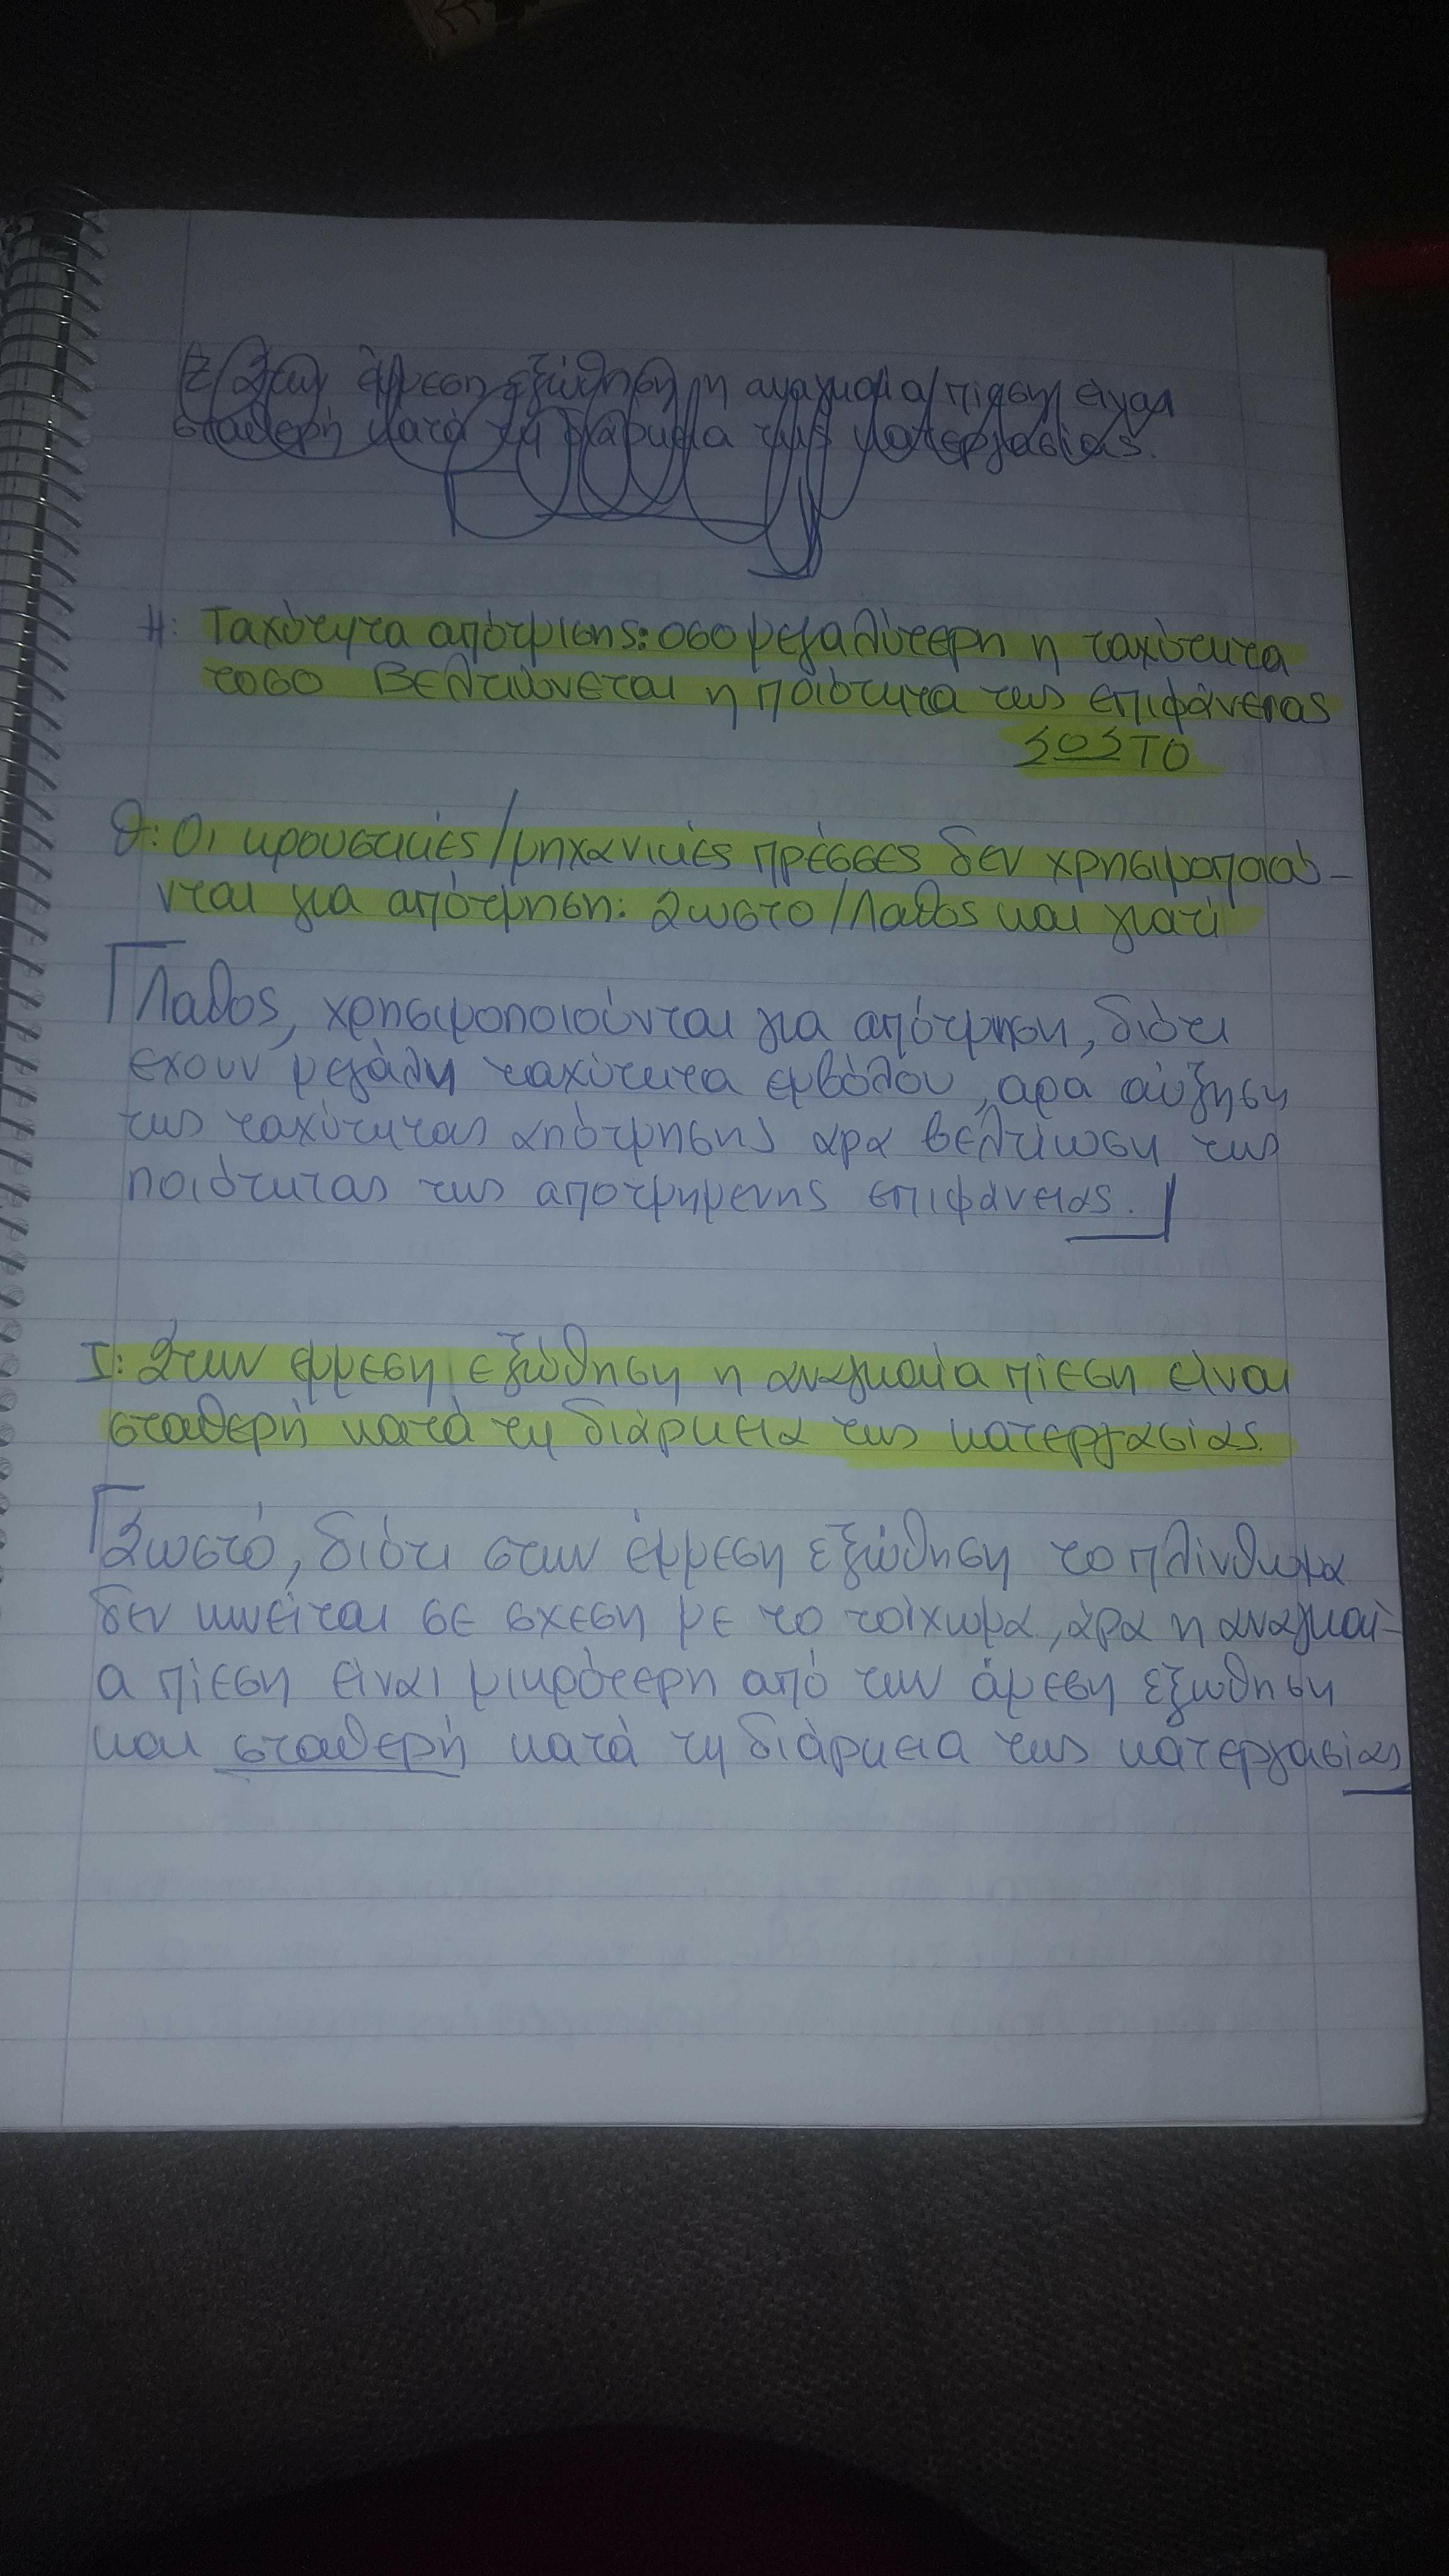 Στην άμεση εξώθηση η αναγκαία πίεση είναι
σταθερή κατά τη διάρκεια της κατεργασίας.
Η: Ταχύτητα απότμισης: οσο μεγαλύτερη η ταχύτητα
τοσο Βελτιώνεται η ποιότητα της επιφάνειας
ΣΟΣΤΟ
Θ: Οι κρουστικές/μηχανικές πρέσσες δεν χρησιμοποιού-
νται για απότμηση: Σωστο/Λαθος και γιατί
Λαθος, χρησιμοποιούνται για απότμηση, διότι
εχουν μεγάλη ταχύτητα εμβόλου, αρα αύξηση
της ταχύτητας απότμησης αρα βελτίωση της
ποιότητας της αποτμημενης επιφάνειας.
Ι: Στην εμμεση εξώθηση η αναγκαία πίεση είναι
σταθερή κατά τη διάρκεια της κατεργασίας.
Σωστό, διότι στην έμμεση εξώθηση το πλίνθωμα
δεν κινείται σε σχεση με το τοίχωμα, άρα η αναγκαί-
α πίεση είναι μικρότερη από την άμεση εξωθηση
και σταθερή κατά τη διάρκεια της κατεργασίας